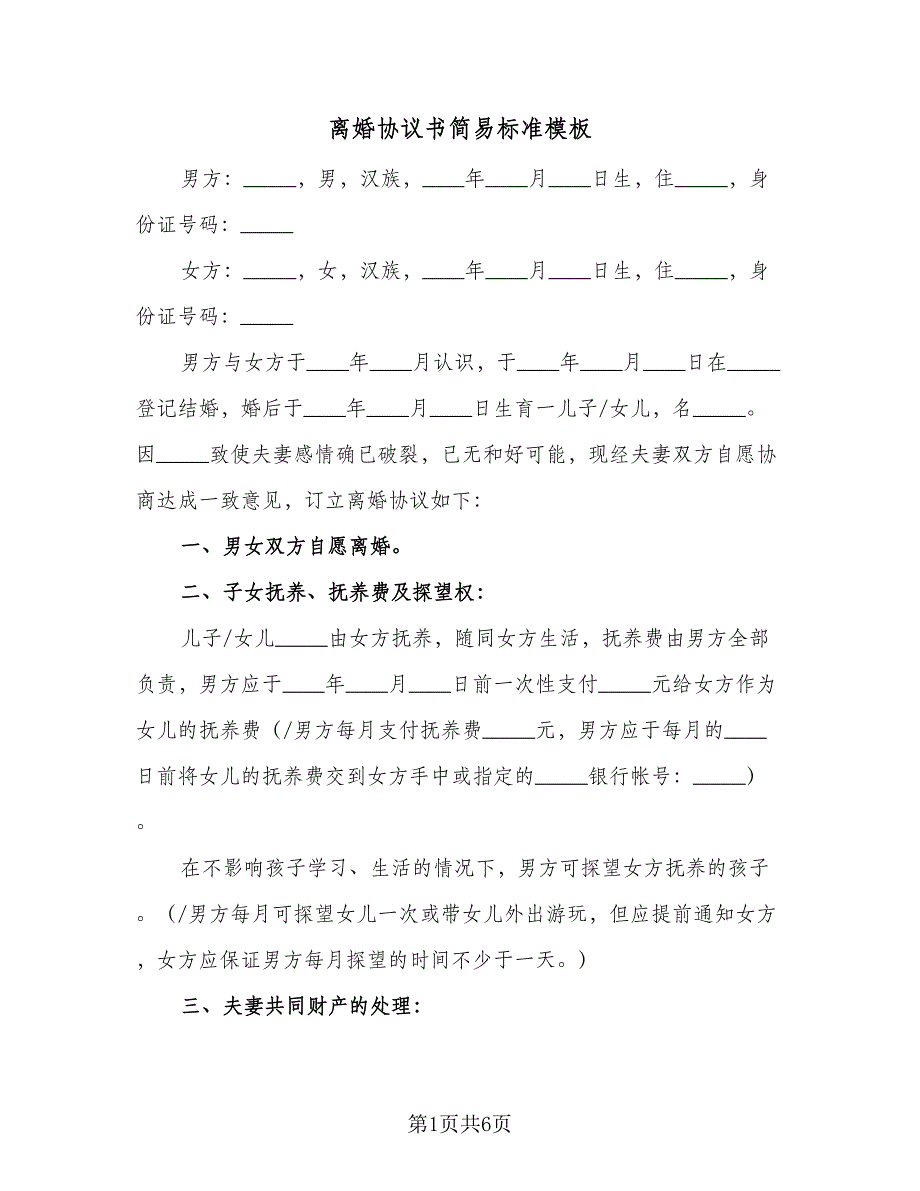 离婚协议书简易标准模板
男方：_____，男，汉族，____年____月____日生，住_____，身
份证号码：_____
女方：_____，女，汉族，____年____月____日生，住_____，身
份证号码：_____
男方与女方于____年____月认识，于____年____月____日在_____
登记结婚，婚后于____年____月____日生育一儿子/女儿，名_____。
因_____致使夫妻感情确已破裂，已无和好可能，现经夫妻双方自愿协
商达成一致意见，订立离婚协议如下：
一、男女双方自愿离婚。
二、子女抚养、抚养费及探望权：
儿子/女儿_____由女方抚养，随同女方生活，抚养费由男方全部
负责，男方应于____年____月____日前一次性支付_____元给女方作为
女儿的抚养费（/男方每月支付抚养费_____元，男方应于每月的____
日前将女儿的抚养费交到女方手中或指定的_____银行帐号：_____）
。
在不影响孩子学习、生活的情况下，男方可探望女方抚养的孩子
。（/男方每月可探望女儿一次或带女儿外出游玩，但应提前通知女方
，女方应保证男方每月探望的时间不少于一天。）
三、夫妻共同财产的处理：
第1页共6页